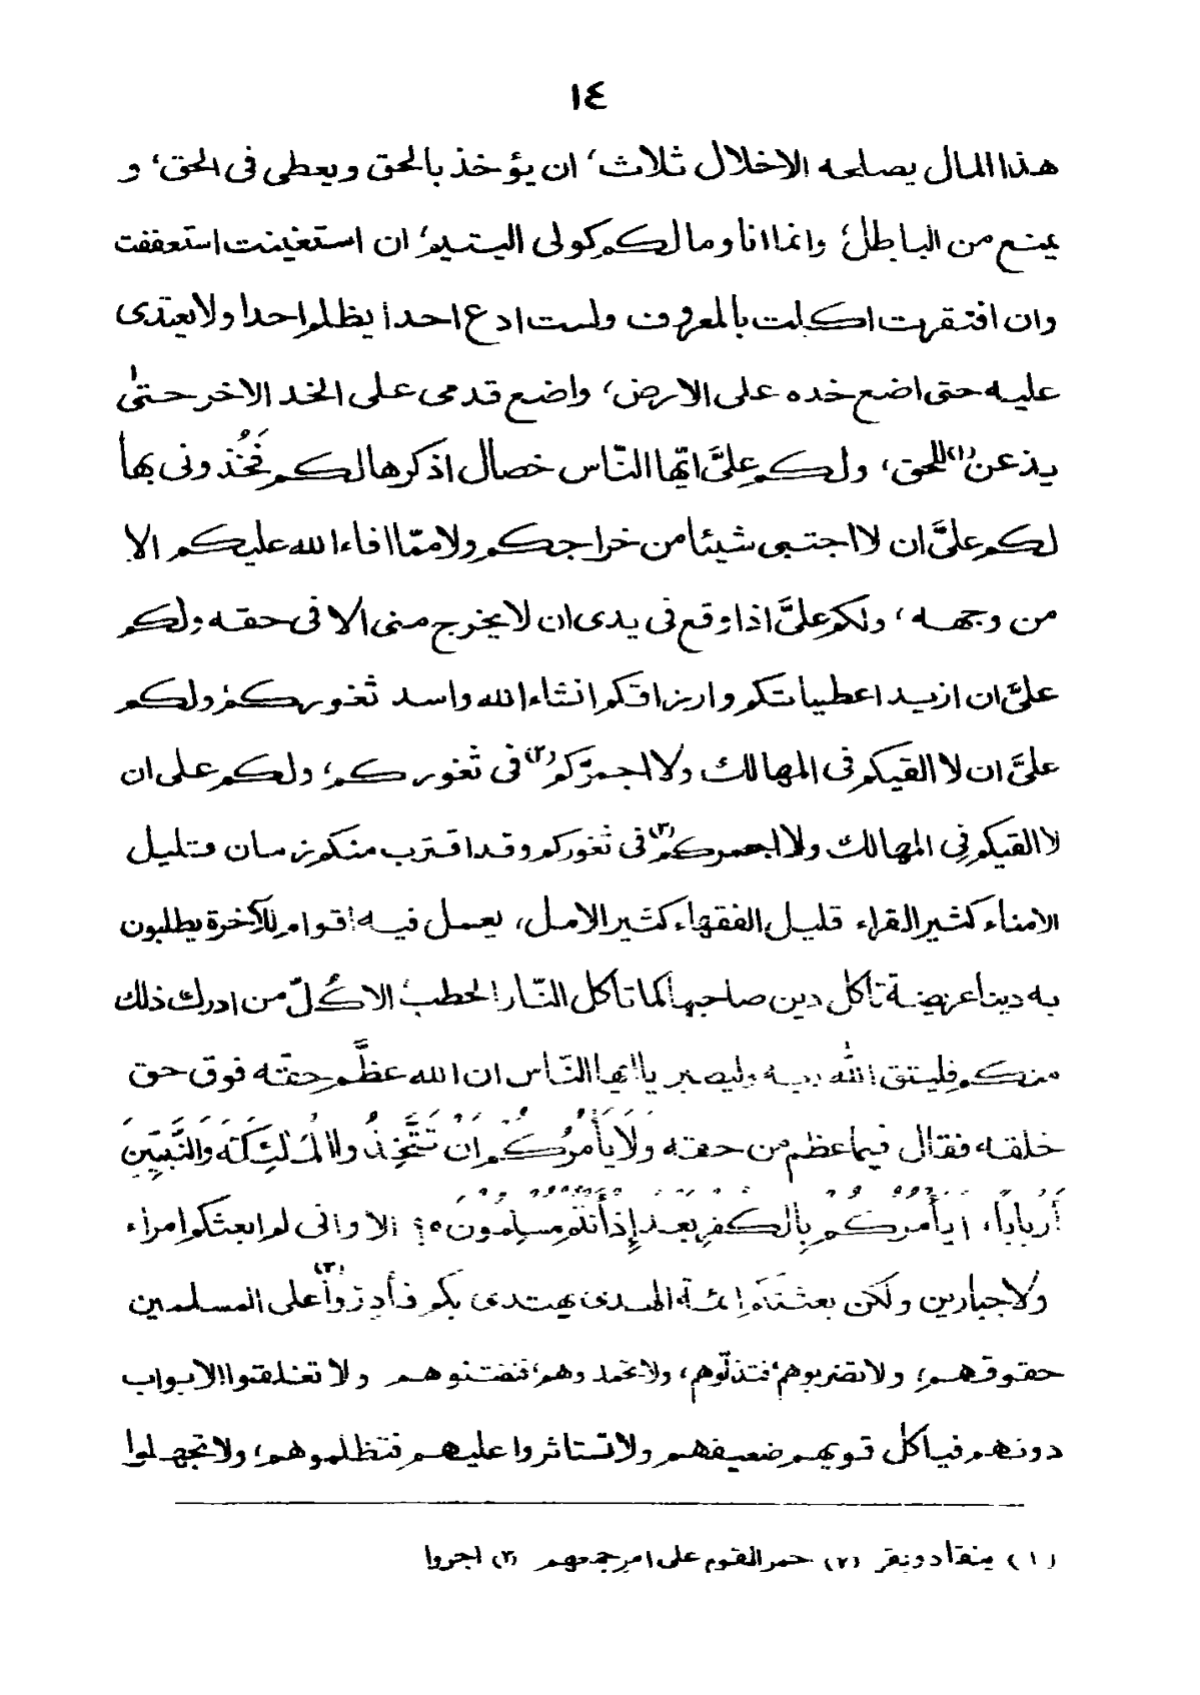 ١٤
هذا المال يصلحه الاخلال ثلاث، ان يؤخذ بالحق ويعطى فى الحق، و
يمنع من الباطل؛ وانما انا ومالكم كولى اليتيم؛ ان استغنيت استعففت
وان افتقرت اكلت بالمعروف ولست ادع احدا يظلم احدا ولا يعتدى
عليه حتى اضع خده على الارض، واضع قدمى على الخد الاخر حتىٰ
يذعن(١) للحق، ولكم علىَّ ايّها النّاس خصال اذكرها لكم فَخُذونى بها
لكم علىَّ ان لا اجتبى شيئا من خراجكم ولا ممّا افاء الله عليكم الا
من وجهه، ولكم علىَّ اذا وقع فى يدى ان لا يخرج منى الا فى حقه ولكم
علىَّ ان ازيد اعطياتكم وارزاقكم انشاء الله واسد ثغوركم ولكم
علىَّ ان لا القيكم فى المهالك ولا اجمرّكم(٢) فى ثغوركم؛ ولكم على ان
لا القيكم فى المهالك ولا اجمركم(٣) فى ثغوركم وقد اقترب منكم زمان قليل
الامناء كثير القراء قليل الفقهاء كثير الامل، يعمل فيه اقوام للآخرة يطلبون
به دينا عريضة تأكل دين صاحبها كما تاكل النّار الحطب الا كُلّ من ادرك ذلك
منكم فليتق الله ربه وليصبر يا ايها النّاس ان الله عظَّم حقّه فوق حق
خلقه فقال فيما عظم من حقه وَلَا يَأْمُرُكُمْ اَنْ تَتَّخِذُوا الْمَلٰئِكَةَ وَالنَّبِيّٖنَ
أَرْبَابًا، اَيَأْمُرُكُمْ بِالْكُفْرِ بَعْدَ إِذْ أَنْتُمْ مُسْلِمُونَ ہ؛ الا وانى لم ابعثكم امراء
ولا جبارين ولكن بعثتكم ائمة الهدى يهتدى بكم فأدِرّوا(٣) على المسلمين
حقوقهم؛ ولا تضربوهم فتذلّوهم، ولا تحمدوهم؛ فتفتنوهم ولا تغلقوا الابواب
دونهم فياكل قويهم ضعيفهم ولا تستاثروا عليهم فتظلموهم؛ ولا تجهلوا
(١) ينقاد ويقر (٢) جمر القوم على امر جمعهم (٣) اجروا